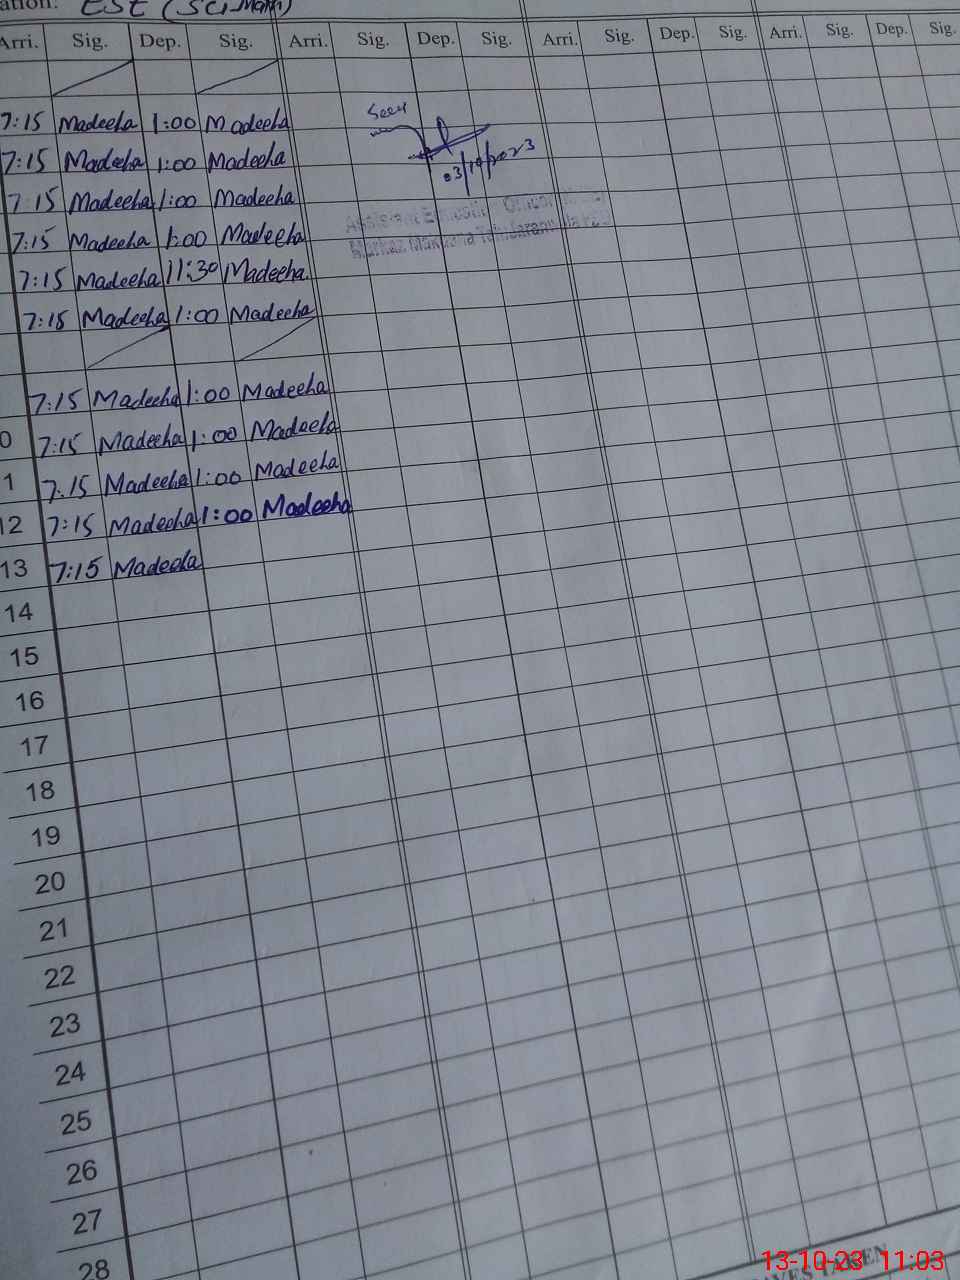 ation: ESE (Sci-Math)
Arri. Sig. Dep. Sig. Arri. Sig. Dep. Sig. Arri. Sig. Dep. Sig. Arri. Sig. Dep. Sig.
7:15 Madeeha 1:00 Madeeha Seen
7:15 Madeeha 1:00 Madeeha 03/10/2023
7:15 Madeeha 1:00 Madeeha
7:15 Madeeha 1:00 Madeeha
7:15 Madeeha 11:30 Madeeha
7:15 Madeeha 1:00 Madeeha
7:15 Madeeha 1:00 Madeeha
0 7:15 Madeeha 1:00 Madeeha
1 7:15 Madeeha 1:00 Madeeha
12 7:15 Madeeha 1:00 Madeeha
13 7:15 Madeeha
14
15
16
17
18
19
20
21
22
23
24
25
26
27
28
13-10-23 11:03